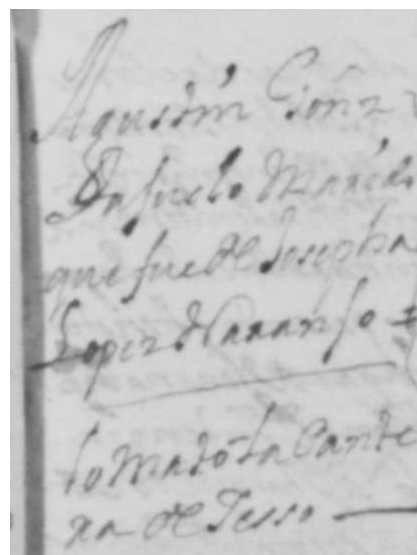 Agustin Gonz
Dasuelo Marido
que fue de Josepha
Lopez de Naranjo =
lo mató la Cante
ra de Jesso —